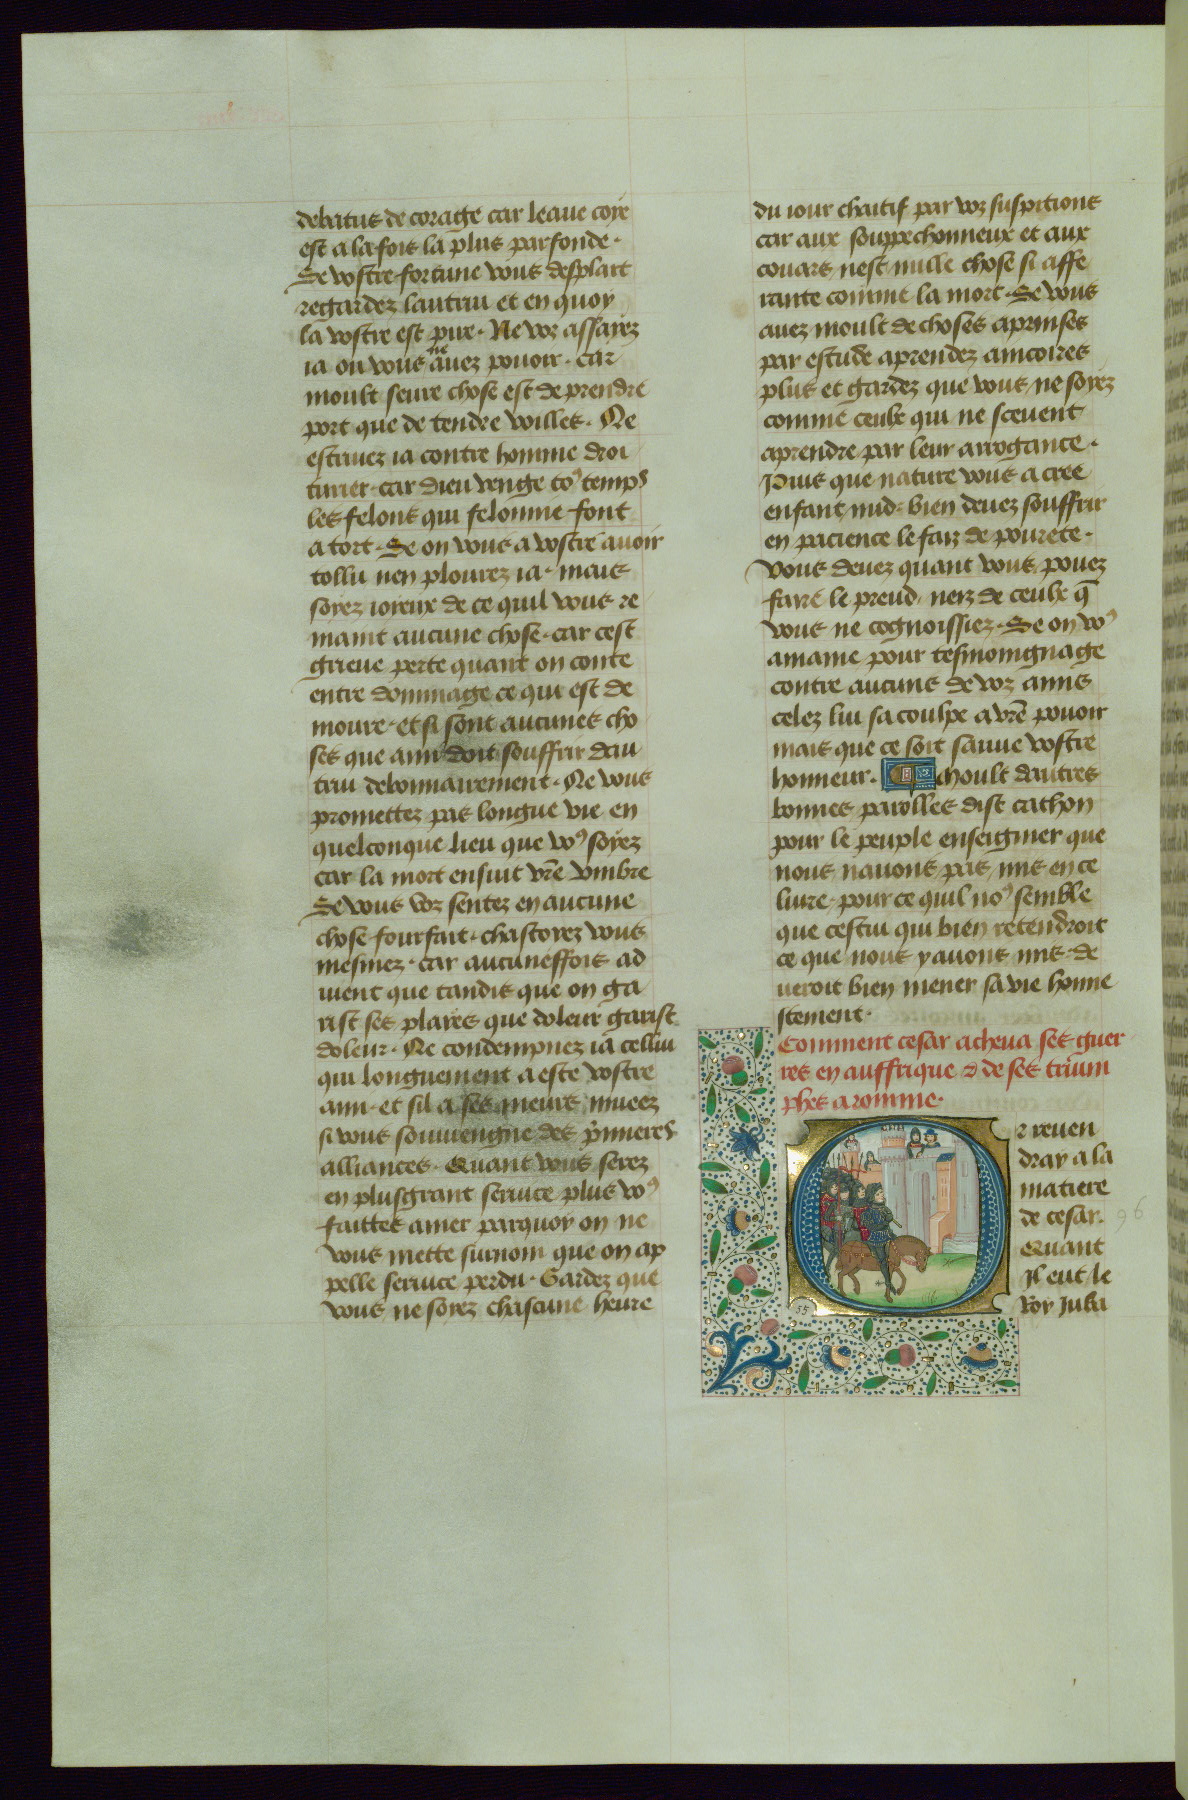 debatus de corage car leaue coye
est a la fois la plus parfonde·
Se vostre fortune vous desplait
regardez lautrui et en quoy
la vostre est pire· Ne voz assayez
ia ou vous ne auez pouoir· car
moult seure chose est de prendre
port que de tendre voilles· Ne
estriuez ia contre homme droi
turier· car dieu venge to⁹ temps
les felons qui felonnie font
a tort· Se on vous a vostre auoir
tollu nen plourez ia· mais
soyez ioyeux de ce quil vous re
maint aucune chose· car cest
grieue perte quant on conte
entre dommage ce qui est de
moure· et si sont aucunes cho
ses que ami doit souffrir dau
trui debonnairement· Ne vous
promettez pas longue vie en
quelconque lieu que vo⁹ soyez
car la mort ensuit vr̃e vmbre
Se vous voz sentez en aucune
chose fourfait· chastoyez vous
mesmez· car aucuneffois ad
uient que tandis que on ga
rist ses playes que doleur garist
doleur· Ne condempnez ia celluy
qui longuement a este vostre
ami· et sil a ses meurs mueez
si vous souuiengne des p̃mieres
alliances· Quant vous serez
en plusgrant seruice plus vo⁹
faittes amer parquoy on ne
vous mette surnom que on ap
pelle seruice perdu· Gardez que
vous ne soyez chascune heure
du iour chaitif par voz suspitions
car aux souppechonneux et aux
couars nest nulle chose si affe
rante comme la mort· Se vous
auez moult de choses aprinses
par estude aprendez ancoires
plus et gardez que vous ne soyez
comme ceulx qui ne sceuent
aprendre par leur arrogance·
Puis que nature vous a cree
enfant nud· bien deuez souffrir
en pacience le faiz de pourete·
Vous deuez quant vous pouez
faire le preud, nerz de ceulx q̃
vous ne cognoissiez· Se on vo⁹
amaine pour tesmoingnage
contre aucuns de voz amis
celez lui sa coulpe a vr̃e pouoir
mais que ce soit sauue vostre
honneur· Moult dautres
bonnes parolles dist cathon
pour le peuple enseignier que
nous nauons pas mis en ce
liure· pour ce quil no⁹ semble
que cestui qui bien retendroit
ce que nous y auons mis· de
ueroit bien mener sa vie honne
stement·
Comment cesar acheua ses guer
res en auffrique & de ses trium
phes a romme·
Or reuen
dray a la
matiere
de cesar.
Quant
Jl eut le
Roy Juba
96
55